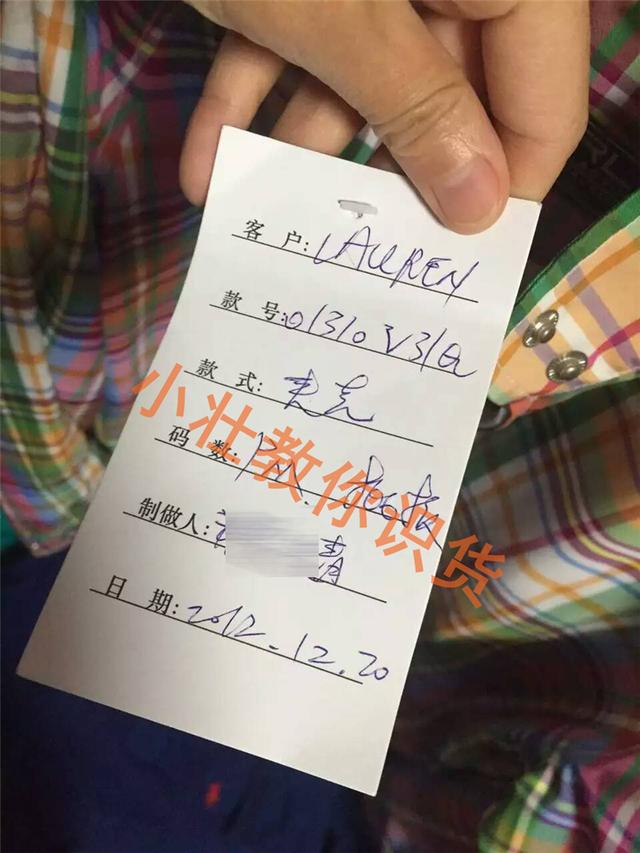 客 户: LAUREN
款 号: 01310V31Q
款 式: 夹克
码 数:
制做人: 青
日 期: 2012-12.20
小壮教你识货
RL